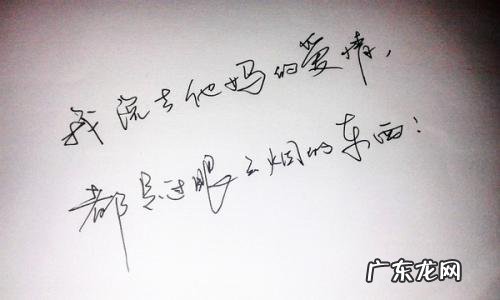 我说去他妈的爱情，
都是过眼云烟的东西！
广东龙网